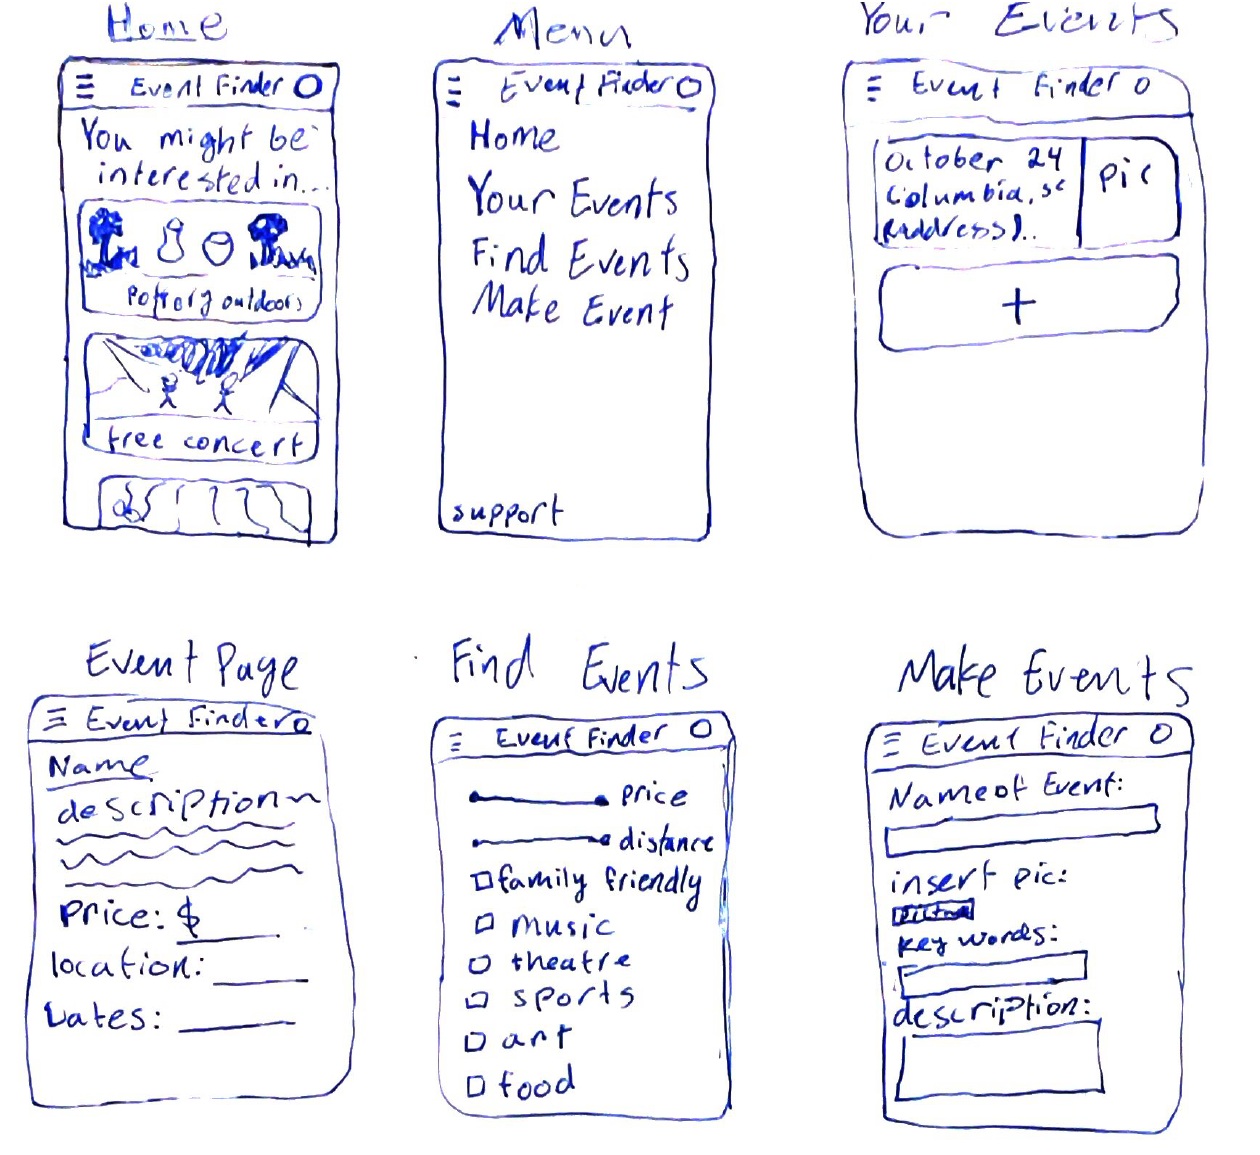 Home
Event Finder
You might be
interested in...
pottory outdoors
free concert
Menu
Event Finder
Home
Your Events
Find Events
Make Event
support
Your Events
Event Finder
October 24
Columbia, sc
(address)..
pic
+
Event Page
Event Finder
Name
description
Price: $
location:
Dates:
Find Events
Event Finder
price
distance
family friendly
music
theatre
sports
art
food
Make Events
Event Finder
Name of Event:
insert pic:
key words:
description: